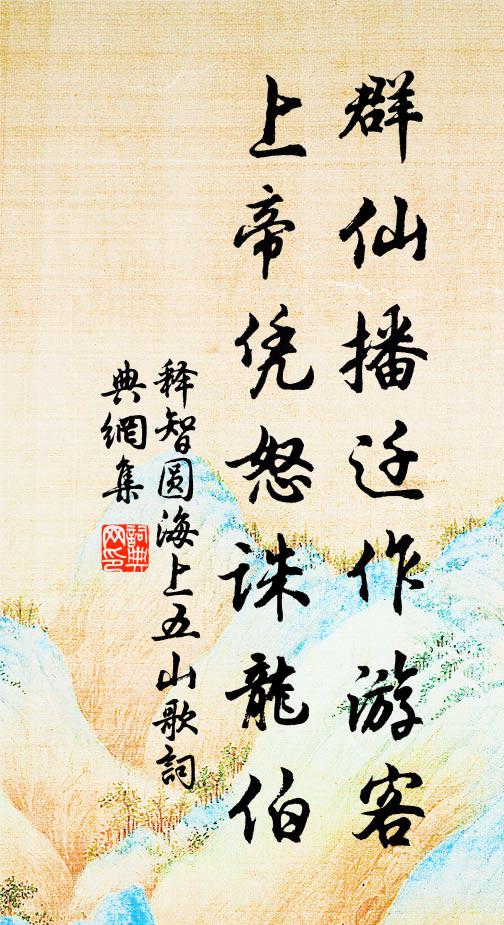 群仙播迁作游客
上帝凭怒诛龍伯
释智圆海上五山歌詞
典網集
詞典網印